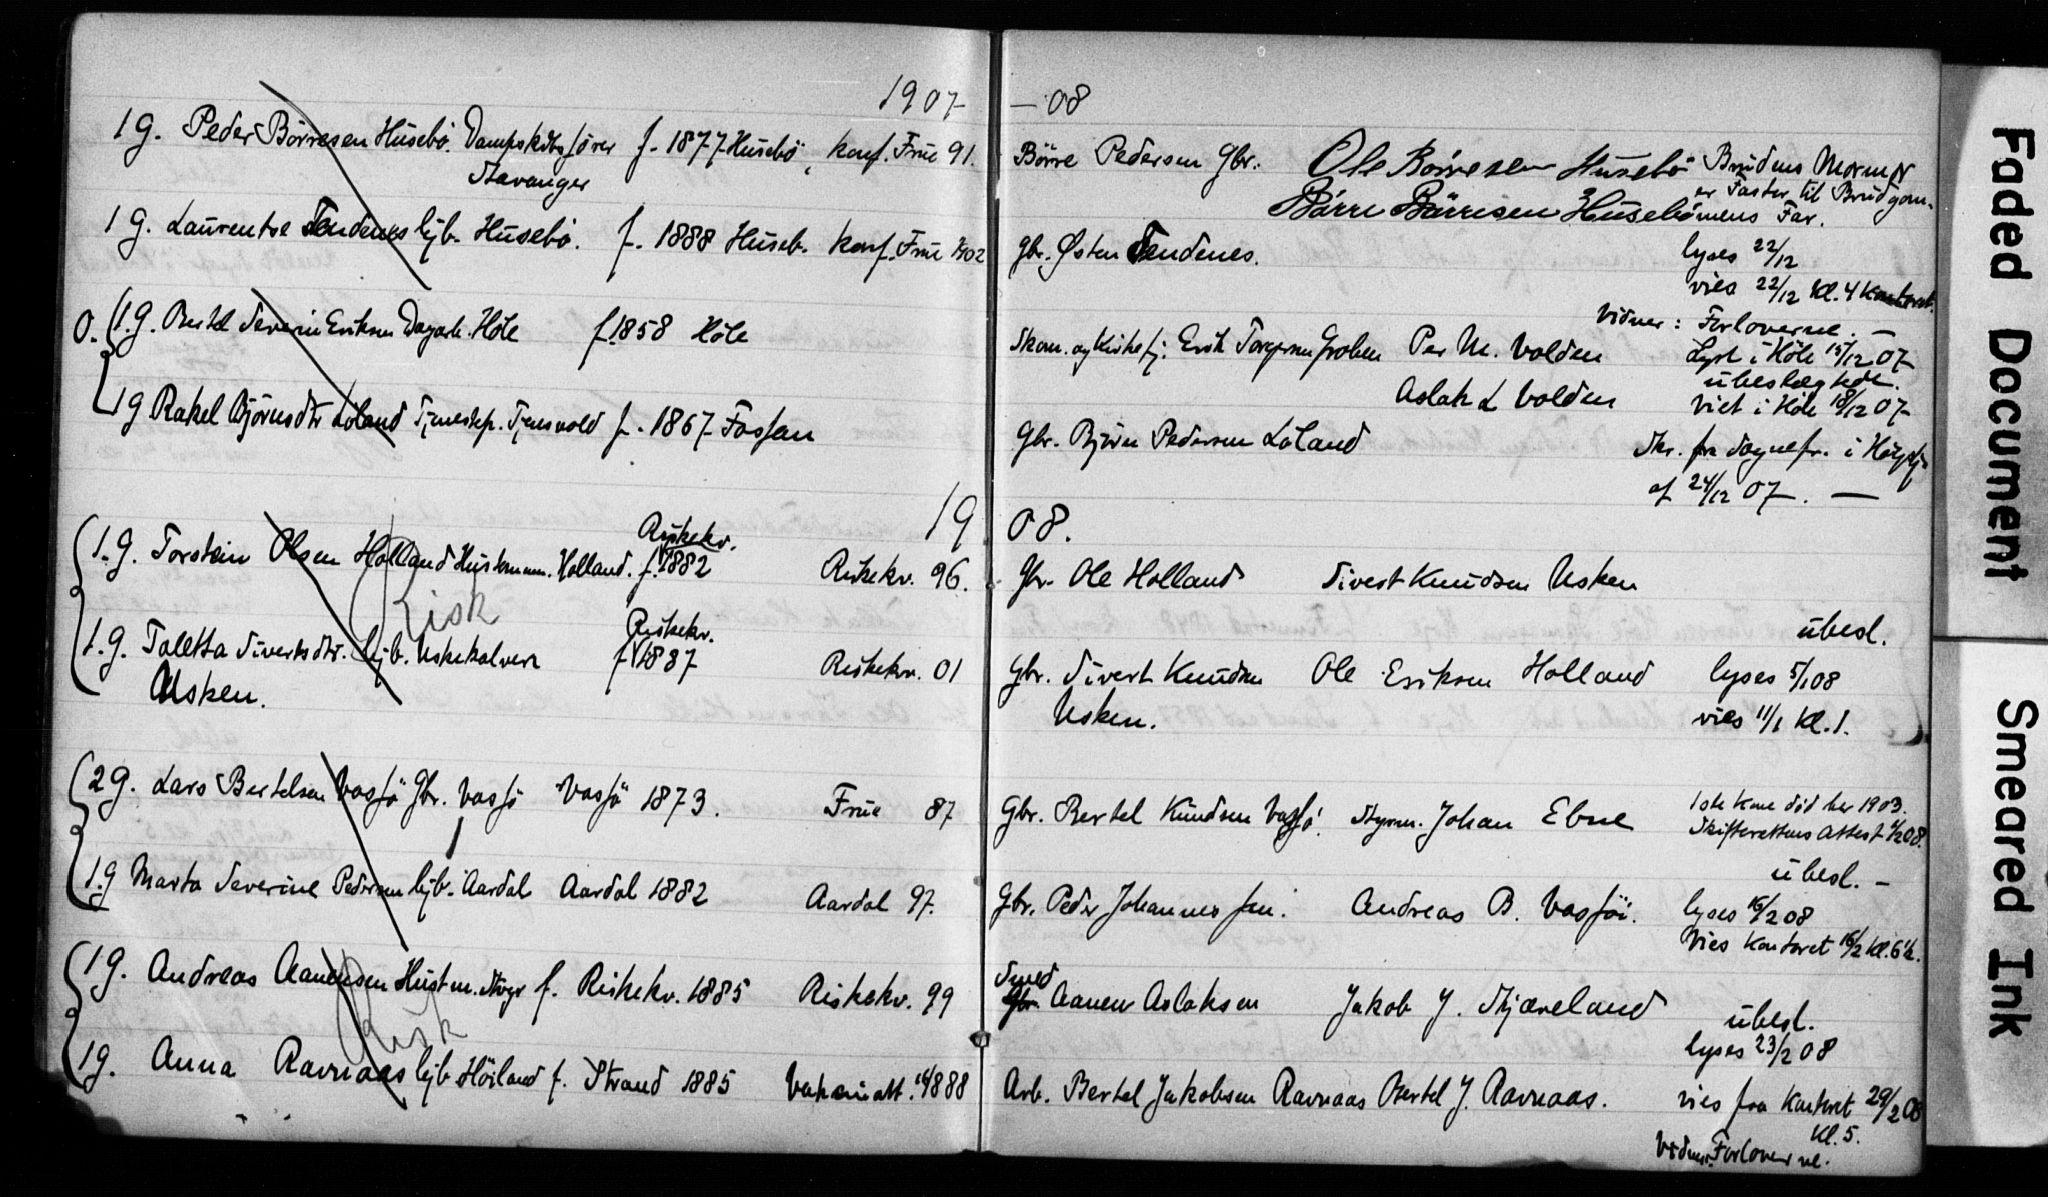 1907 — 08
1 G. Peder Börresen Husebö. Dampskibsförer f. 1877 Husebö, konf. Frue 91.
Stavanger
Börre Pedersen Gbr. Ole Börresen Husebö Brudens Mormor
er Faster til Brudgom-
Börre Börresen Husebö mens Far.
1 G. Laurentse Tendenes hjb. Husebö. f. 1888 Huseb. konf. Frue 1902
Gbr. Østen Tendenes. lyses 22/12
vies 22/12 Kl. 4 Kontoret.
Vidner: Forloverne. —
0. 1. G. Bertel Severin Eriksen Dagarb. Höle f. 1858 Höle
Skom. og Kirkesj. Erik Per M. Volden Lyst i Höle 15/12 07
ubeslægtede.
Aslak L Volden Viet i Höle 18/12 07
1 G Rakel Björnsdtr Löland Tjenestep. f. 1867 Fossan
Gbr. Björn Pedersen Löland Skr. fra Sognepr. i
af 24/12 07. —
19 08.
Riskekv.
1. G. Torstein Olsen Holland Husmann. Holland. f. 1882 Riskekv. 96.
Gbr. Ole Holland Sivert Knudsen Usken
Risk
ubesl.
Riskekv.
1. G. Taletta Sivertsdtr. hjb. Uskekalven f. 1887 Riskekv. 01
Usken.
Gbr. Sivert Knudsen Ole Eriksen Holland lyses 5/1 08
Usken. vies 11/1 Kl. 1.
2 G. Lars Bertelsen Vasjö Gbr. Vasjö Vasjö 1873. Frue 87
Gbr. Bertel Knudsen Vasjö. Styrm. Johan Ebne 1ste Kone död her 1903.
Skifterettens Attest 4/2 08.
ubesl. —
1. G Marta Severine Pedersen hjb. Aardal Aardal 1882 Aardal 97.
Gbr. Peder Johannessen. Andreas B. Vasjöi. lyses 16/2 08
Vies Kontoret 16/2 Kl. 6 1/2.
1 G. Andreas Aanensen Husm. Stvgr f. Riskekv. 1885 Riskekv. 99
Smed
Gbr. Aanen Aslaksen Jakob J. Skjæveland ubesl.
lyses 23/2 08
Risk
1 G. Anna Ravnaas hjb Höiland f. Strand 1885 Vaksinatt. 14/8 88
Arb. Bertel Jakobsen Ravnaas Bertel J. Ravnaas. vies fra Kontoret 29/2 08
Kl. 5.
Vidner: Forloverne.
Faded Document
Smeared Ink